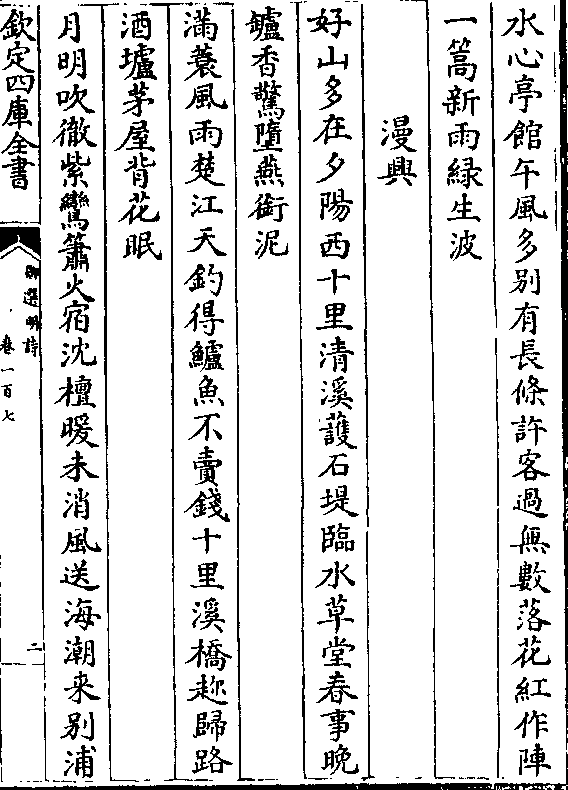 水心亭館午風多別有長條許客過無數落花紅作陣
一篙新雨緑生波
漫興
好山多在夕陽西十里清溪護石堤臨水草堂春事晚
鑪香驚墮燕銜泥
滿蓑風雨楚江天釣得鱸魚不賣錢十里溪橋趂歸路
酒壚茅屋背花眠
月明吹徹紫鸞簫火宿沈檀暖未消風送海潮来別浦
欽定四庫全書
御選明詩
卷一百七
二